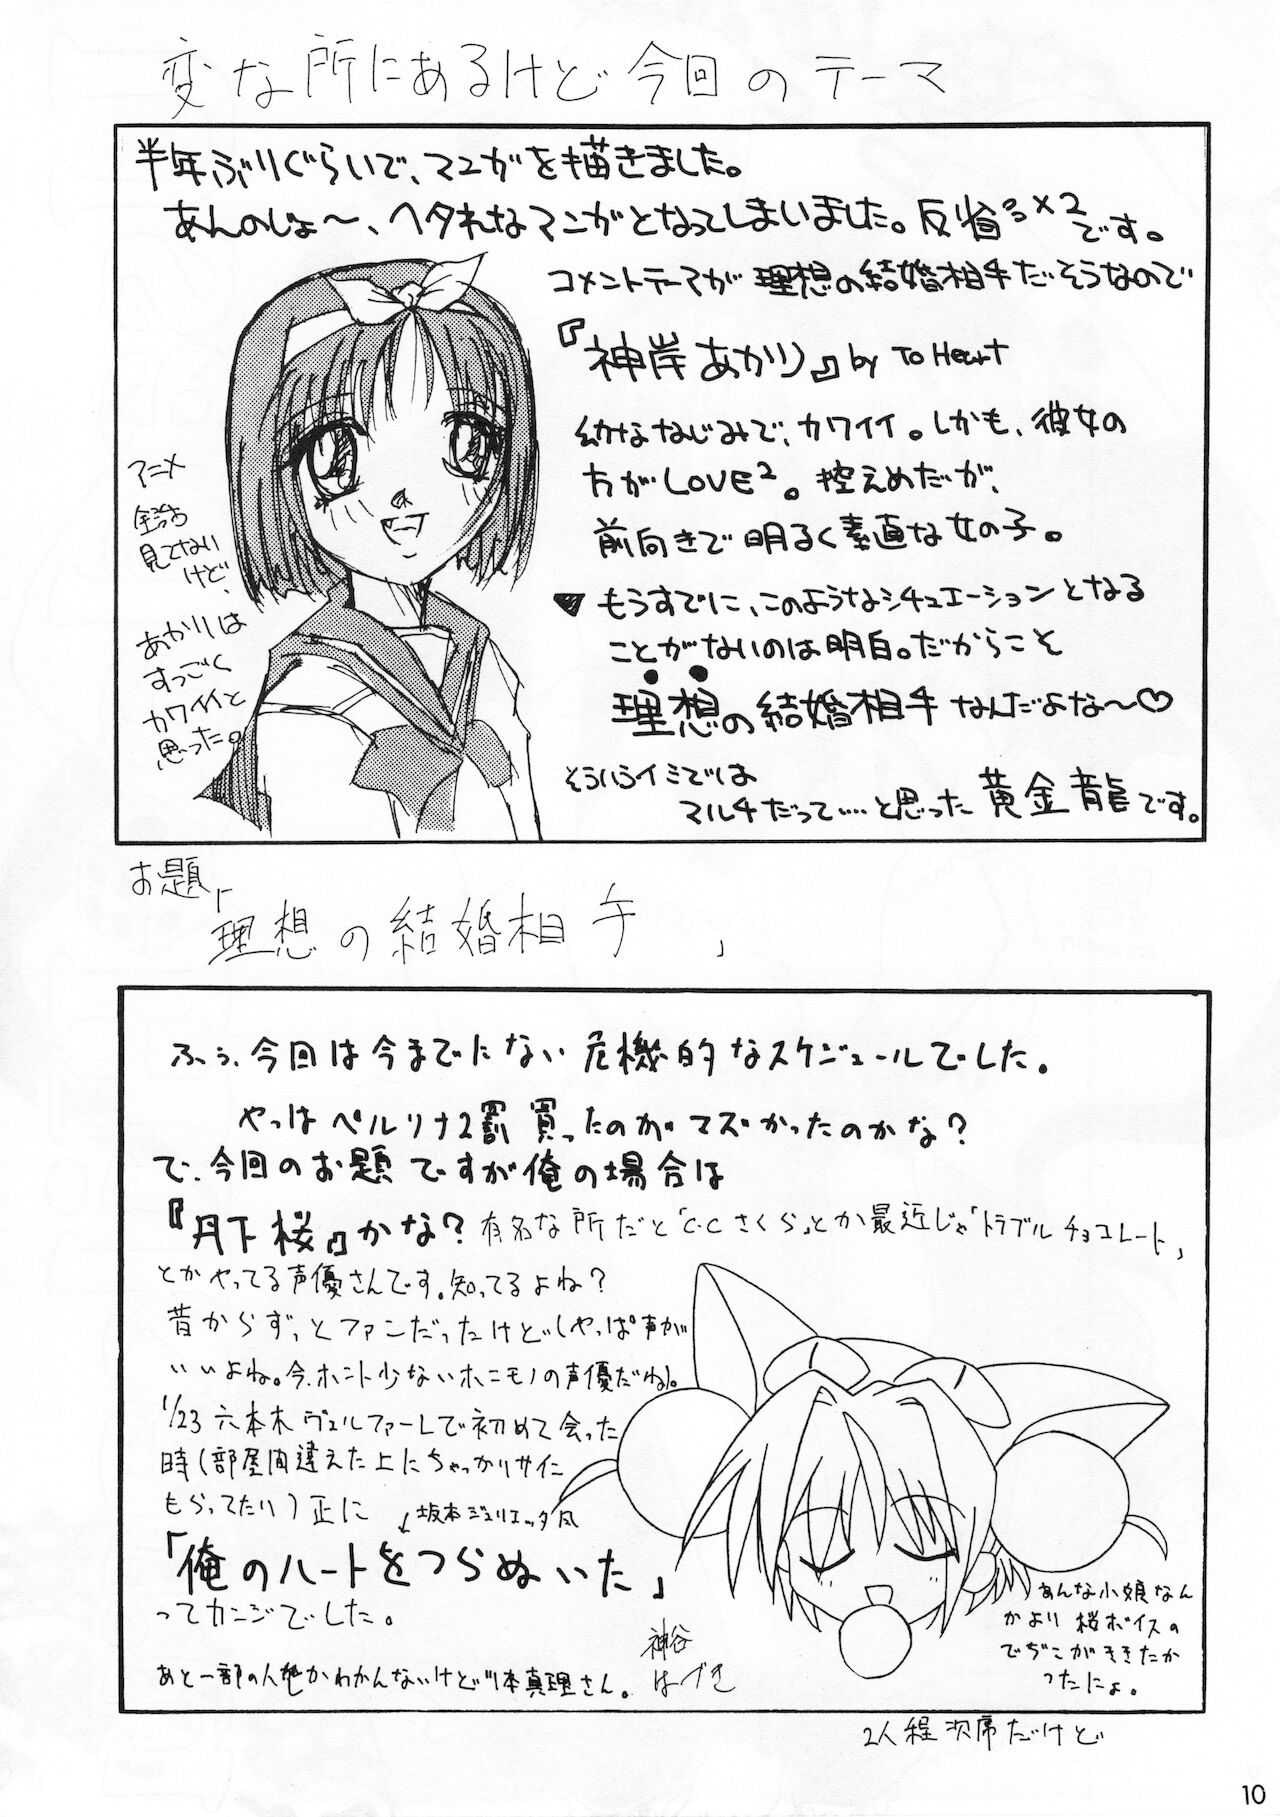 変な所にあるけど今回のテーマ
半年ぶりぐらいで、マンガを描きました。
あんのじょ〜、ヘタれなマンガとなってしまいました。反省×2です。
コメントテーマが理想の結婚相手だそうなので
『神岸あかり』by To Heart
幼ななじみで、カワイイ。しかも、彼女の
方がLOVE²。控えめだが、
前向きで明るく素直な女の子。
もうすでに、このようなシチュエーションとなる
ことがないのは明白。だからこそ
理想の結婚相手なんだよな〜♡
そういうイミでは
マルチだって‥‥と思った黄金龍です。
アニメ
全然
見てない
けど、
あかりは
すっごく
カワイイと
思った。
お題
「理想の結婚相手」
ふぅ、今回は今までにない危機的なスケジュールでした。
やっぱペルソナ2罰買ったのがマズかったのかな?
で、今回のお題ですが俺の場合は
『丹下桜』かな?有名な所だと「C.Cさくら」とか最近じゃ「トラブルチョコレート」
とかやってる声優さんです。知ってるよね?
昔からずっとファンだったけど(やっぱ声が
いいよね。今、ホント少ないホンモノの声優だね)。
1/23 六本木ヴェルファーレで初めて会った
時(部屋間違えた上にちゃっかりサイン
もらってたり)正に
坂本ジュリエッタ風
「俺のハートをつらぬいた」
ってカンジでした。
神谷
はづき
あと一部の人しかわかんないけど
本真理さん。
あんな小娘なん
かより桜ボイスの
でじこがききたか
ったにょ。
2人程次席だけど
10